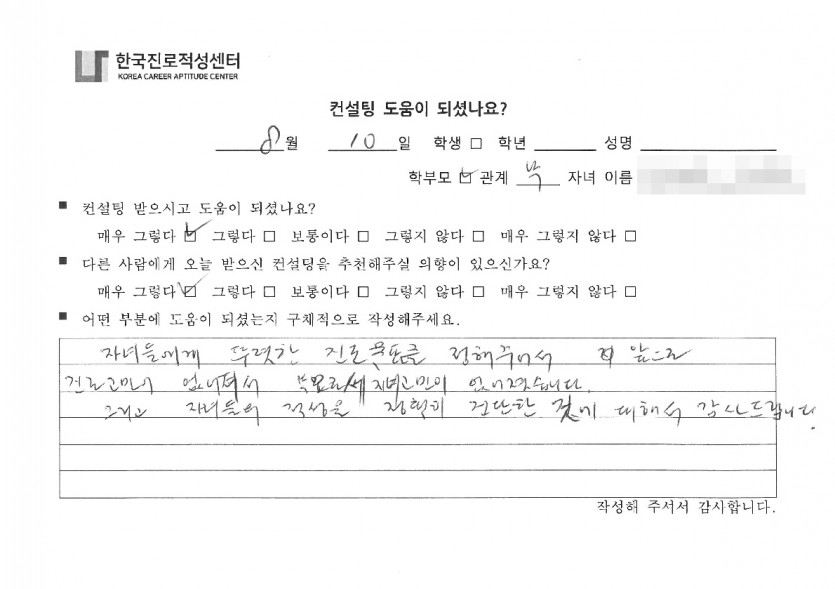 한국진로적성센터
KOREA CAREER APTITUDE CENTER
컨설팅 도움이 되셨나요?
8월 10일 학생 □ 학년 성명
학부모 ☑ 관계 부 자녀 이름
■ 컨설팅 받으시고 도움이 되셨나요?
매우 그렇다 ☑ 그렇다 □ 보통이다 □ 그렇지 않다 □ 매우 그렇지 않다 □
■ 다른 사람에게 오늘 받으신 컨설팅을 추천해주실 의향이 있으신가요?
매우 그렇다 ☑ 그렇다 □ 보통이다 □ 그렇지 않다 □ 매우 그렇지 않다 □
■ 어떤 부분에 도움이 되셨는지 구체적으로 작성해주세요.
자녀들에게 뚜렷한 진로 목표를 정해주어서 앞으로
진로고민이 없어져서 부모로서 자녀고민이 없어졌습니다.
그리고 자녀들의 적성을 정확히 진단한 것에 대해서 감사드립니다.
작성해 주셔서 감사합니다.